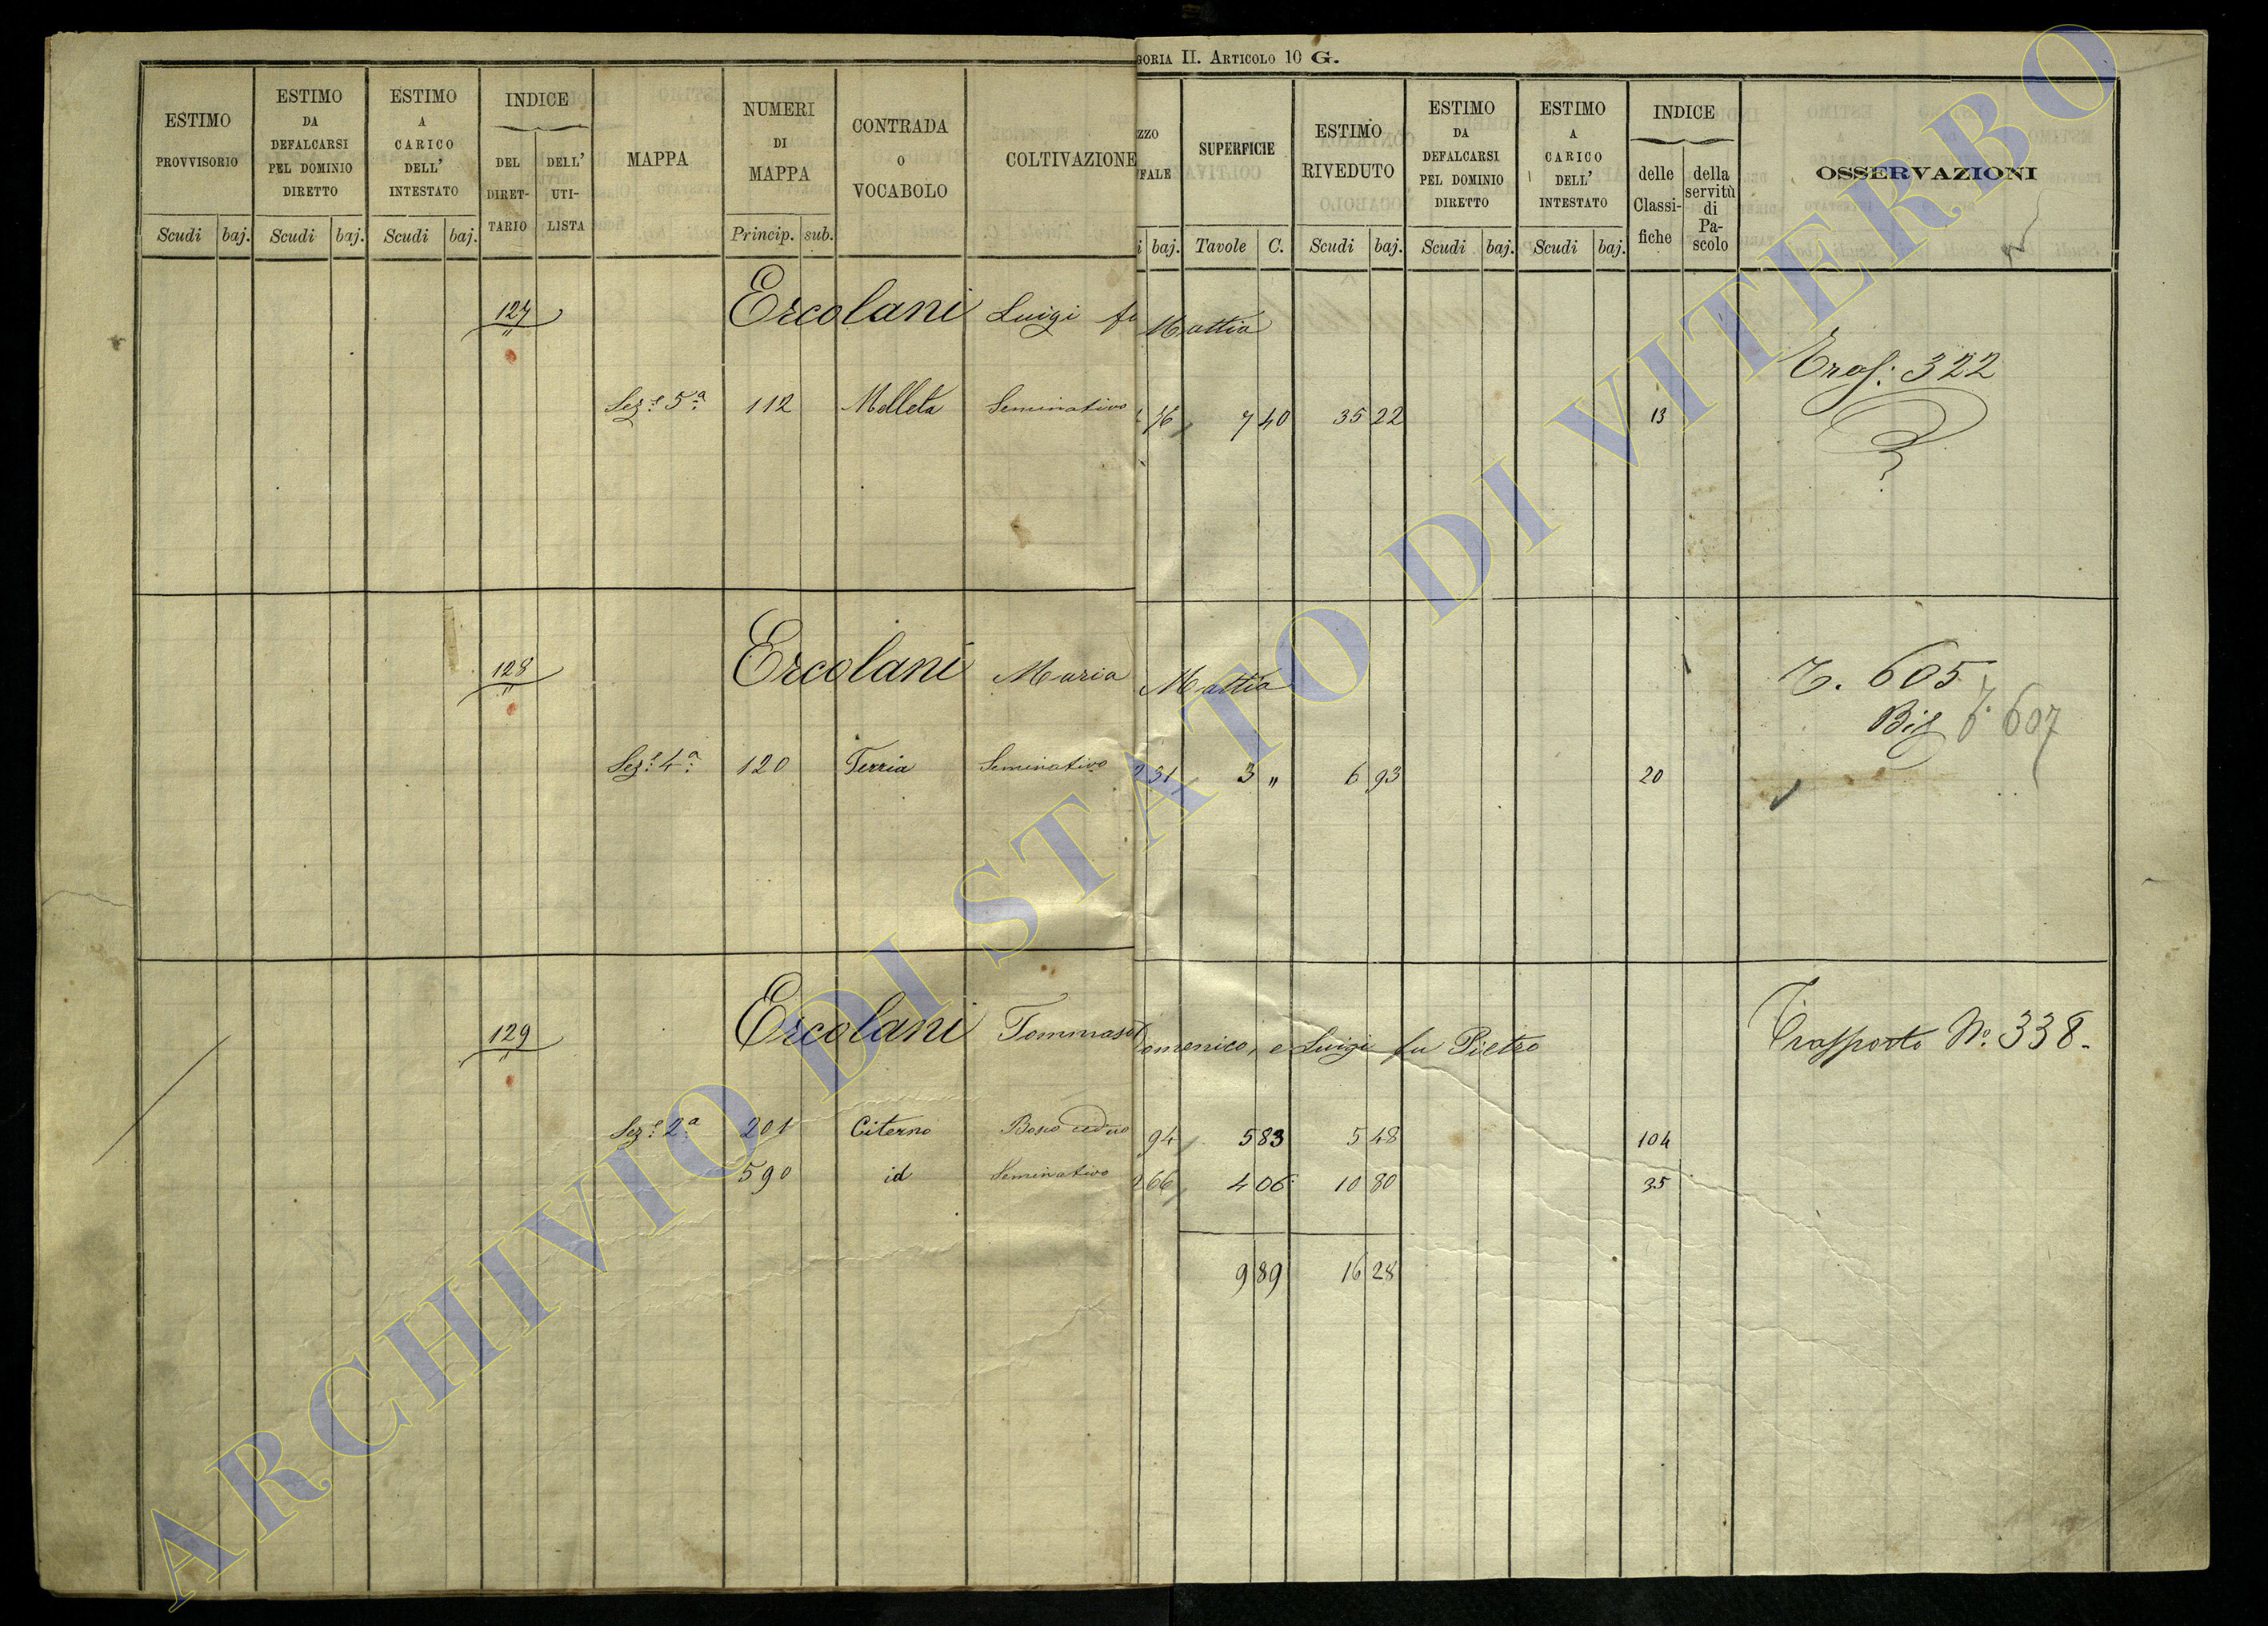 GORIA II. ARTICOLO 10 G.
ESTIMO PROVVISORIO
ESTIMO DA DEFALCARSI PEL DOMINIO DIRETTO
ESTIMO A CARICO DELL' INTESTATO
INDICE
DEL DIRET-TARIO
DELL' UTI-LISTA
MAPPA
NUMERI DI MAPPA
CONTRADA O VOCABOLO
COLTIVAZIONE
ZZO
FALE
SUPERFICIE
ESTIMO RIVEDUTO
ESTIMO DA DEFALCARSI PEL DOMINIO DIRETTO
ESTIMO A CARICO DELL' INTESTATO
INDICE
delle Classi-fiche
della servitù di Pa-scolo
OSSERVAZIONI
Scudi baj. Scudi baj. Scudi baj. Princip. sub. i baj. Tavole C. Scudi baj. Scudi baj. Scudi baj.
127 Ercolani Luigi fu Mattia
Tras: 322
Sez.e 5.a 112 Melleta Seminativo 76 7 40 35 22 13
128 Ercolani Maria Mattia
T. 605
Bis T. 607
Sez.e 4.a 120 Terria Seminativo 2 31 3 " 6 93 20
129 Ercolani Tommaso Domenico, e Luigi fu Pietro
Trasporto No. 338.
Sez.e 2.a 201 Citerno Bosco ceduo 94 5 83 5 48 104
590 id Seminativo 2 66 4 06 10 80 35
9 89 16 28
ARCHIVIO DI STATO DI VITERBO